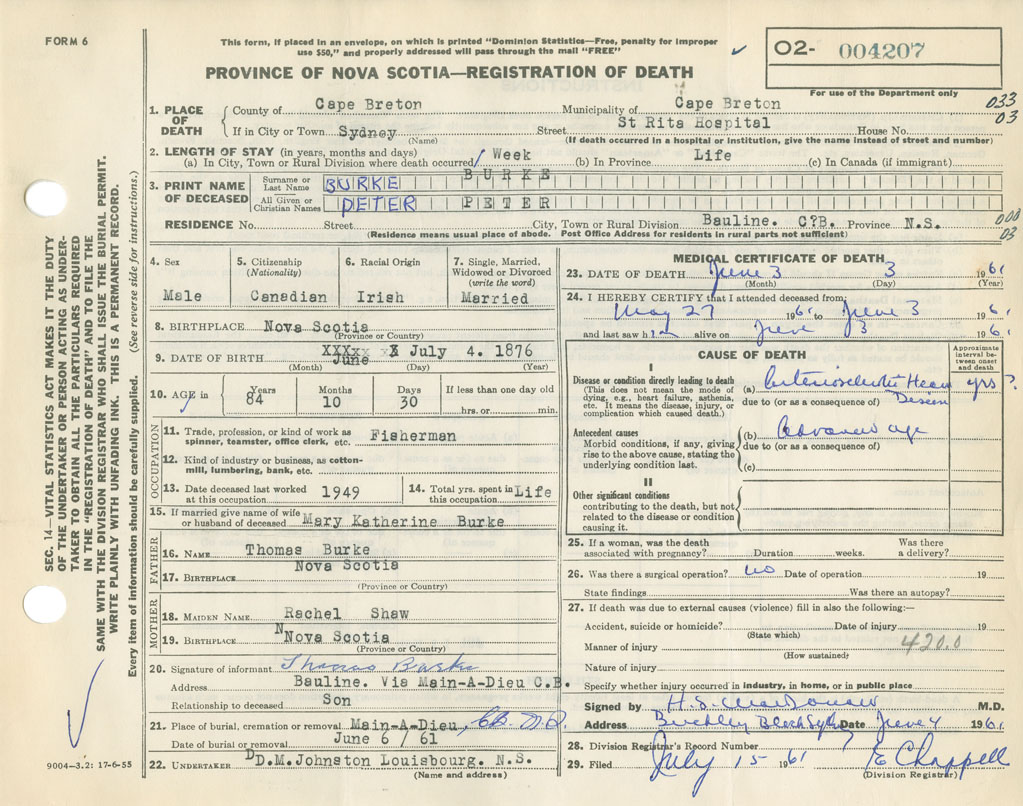 FORM 6
This form, if placed in an envelope, on which is printed "Dominion Statistics—Free, penalty for improper
use $50," and properly addressed will pass through the mail "FREE"
✓
O2- 004207
For use of the Department only
PROVINCE OF NOVA SCOTIA—REGISTRATION OF DEATH
033
03
1. PLACE OF DEATH
County of Cape Breton Municipality of Cape Breton
If in City or Town Sydney Street St Rita Hospital House No.
(Name) (If death occurred in a hospital or institution, give the name instead of street and number)
2. LENGTH OF STAY (in years, months and days)
(a) In City, Town or Rural Division where death occurred 1 Week (b) In Province Life (c) In Canada (if immigrant)
3. PRINT NAME OF DECEASED
Surname or Last Name BURKE BURKE
All Given or Christian Names PETER PETER
RESIDENCE No. Street City, Town or Rural Division Bauline. C?B. Province N.S.
(Residence means usual place of abode. Post Office Address for residents in rural parts not sufficient)
000
03
4. Sex
Male
5. Citizenship
(Nationality)
Canadian
6. Racial Origin
Irish
7. Single, Married,
Widowed or Divorced
(write the word)
Married
8. BIRTHPLACE Nova Scotia
(Province or Country)
9. DATE OF BIRTH XXXXx x X July 4. 1876
June
(Month) (Day) (Year)
10. AGE in
Years 84
Months 10
Days 30
If less than one day old
hrs. or min.
OCCUPATION
11. Trade, profession, or kind of work as
spinner, teamster, office clerk, etc. Fisherman
12. Kind of industry or business, as cotton-
mill, lumbering, bank, etc.
13. Date deceased last worked
at this occupation 1949
14. Total yrs. spent in
this occupation Life
15. If married give name of wife
or husband of deceased Mary Katherine Burke
FATHER
16. NAME Thomas Burke
17. BIRTHPLACE Nova Scotia
(Province or Country)
MOTHER
18. MAIDEN NAME Rachel Shaw
19. BIRTHPLACE NNova Scotia
(Province or Country)
20. Signature of informant Thomas Burke
Address Bauline. Via Main-A-Dieu C.B.
Relationship to deceased Son
21. Place of burial, cremation or removal Main-A-Dieu, C.B.
Date of burial or removal June 6 / 61
22. UNDERTAKER DD.M.Johnston Louisbourg. N.S.
(Name and address)
MEDICAL CERTIFICATE OF DEATH
23. DATE OF DEATH June 3 3 1961
(Month) (Day) (Year)
24. I HEREBY CERTIFY that I attended deceased from:
May 27 1961 to June 3 1961
and last saw him alive on June 3 1961
CAUSE OF DEATH
Approximate
interval be-
tween onset
and death
I
Disease or condition directly leading to death
(This does not mean the mode of
dying, e.g., heart failure, asthenia,
etc. It means the disease, injury, or
complication which caused death.)
(a) Arteriosclerotic Heart yrs ?
due to (or as a consequence of) Disease
Antecedent causes
Morbid conditions, if any, giving
rise to the above cause, stating the
underlying condition last.
(b) Advanced age
due to (or as a consequence of)
(c)
II
Other significant conditions
contributing to the death, but not
related to the disease or condition
causing it.
25. If a woman, was the death
associated with pregnancy? Duration weeks. Was there
a delivery?
26. Was there a surgical operation? no Date of operation 19
State findings Was there an autopsy?
27. If death was due to external causes (violence) fill in also the following:—
Accident, suicide or homicide? Date of injury 19
(State which)
Manner of injury 420.0
(How sustained)
Nature of injury
Specify whether injury occurred in industry, in home, or in public place
Signed by H.S. MacDonald M.D.
Address Date June 4 1961
28. Division Registrar's Record Number
29. Filed July 15 1961 E Chappell
(Division Registrar)
SEC. 14—VITAL STATISTICS ACT MAKES IT THE DUTY
OF THE UNDERTAKER OR PERSON ACTING AS UNDER-
TAKER TO OBTAIN ALL THE PARTICULARS REQUIRED
IN THE "REGISTRATION OF DEATH" AND TO FILE THE
SAME WITH THE DIVISION REGISTRAR WHO SHALL ISSUE THE BURIAL PERMIT.
WRITE PLAINLY WITH UNFADING INK. THIS IS A PERMANENT RECORD.
Every item of information should be carefully supplied. (See reverse side for instructions.)
9004-3.2: 17-6-55